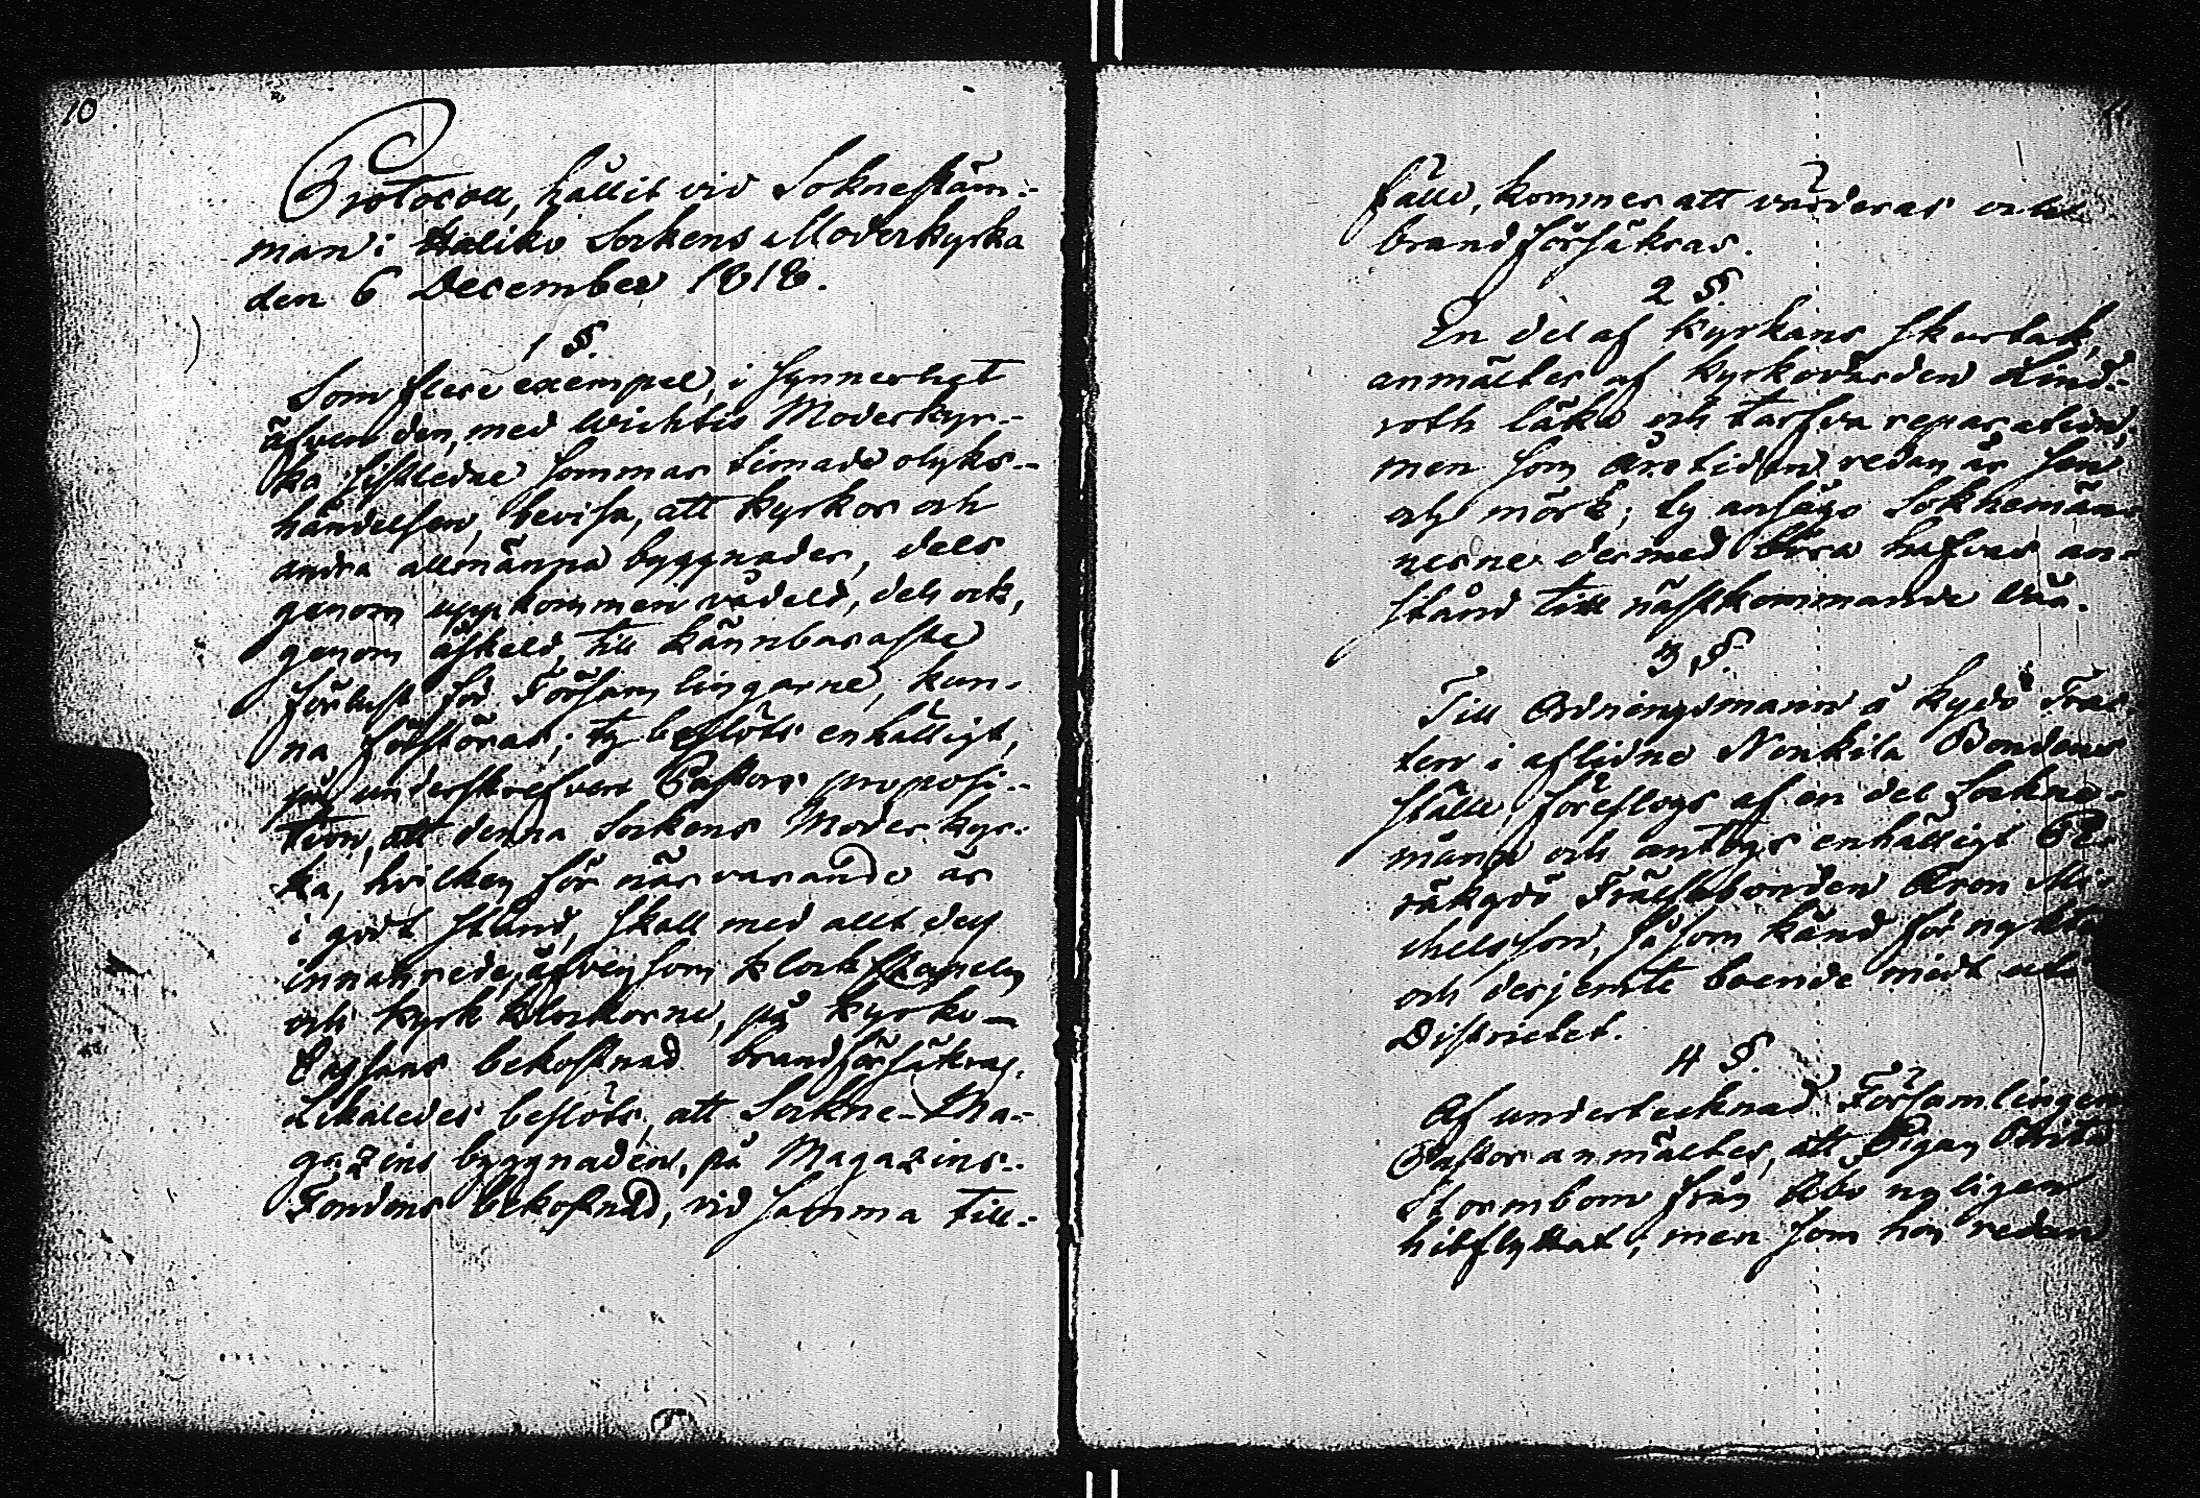 10
Protocoll, hållit vid Soknestäm-
man i Haliko Sockens Moderkyrka
den 6 December 1818.
1 §.
Som flere exempel, i synnerhet
äfven den, med Wichtis Moderkyr-
ka sistledne sommar timade olyks-
händelsen, bevisa, att kyrkor och
andra allmänna byggnader, dels
genom uppkommen vådeld, dels ock,
genom åskeld, till kännbaraste
förlust för Församlingarne, kun-
na förstöras; ty beslöts enhälligt,
på underskrefven Pastors proposi-
tion, att denna Sockens Moderkyr-
ka, hvilken för närvarande är
i godt stånd, skall med allt dess
innanrede, äfvensom klockstapeln
och kyrkklockorne, på kyrko-
Cassans bekostnad brandförsäkras.
Likaledes beslöts, att Sockne-Ma-
gazins byggnaden, på Magazins-
Fondens bekostnad, vid samma till-
fälle, kommer att värderas och
brandförsäkras.
2 §.
En del af kyrkans skurtak,
anmältes af kyrkovärden Lind-
roth läka och tarfva reparation,
men som årstiden redan är sen
och mörk; ty ansågo Soknemän-
nerne dermed böra hafvas an-
stånd till nästkommande vår.
3 §.
Till Ordningsmann å kydö Frac-
ten i aflidne Nonkila Bondens
ställe, föreslogs af en del Sockne-
männ och antogs enhälligt Pe-
räkydö Frälsebonden Aron Mi-
chelsson, såsom känd för nykter
och derjemte boende midt uti
Districtet.
4 §.
Af undertecknad Församlingens
Pastor anmältes, att Pigan Brita
Stormbom från Åbo nyligen
hitflyttat, men som hon redan